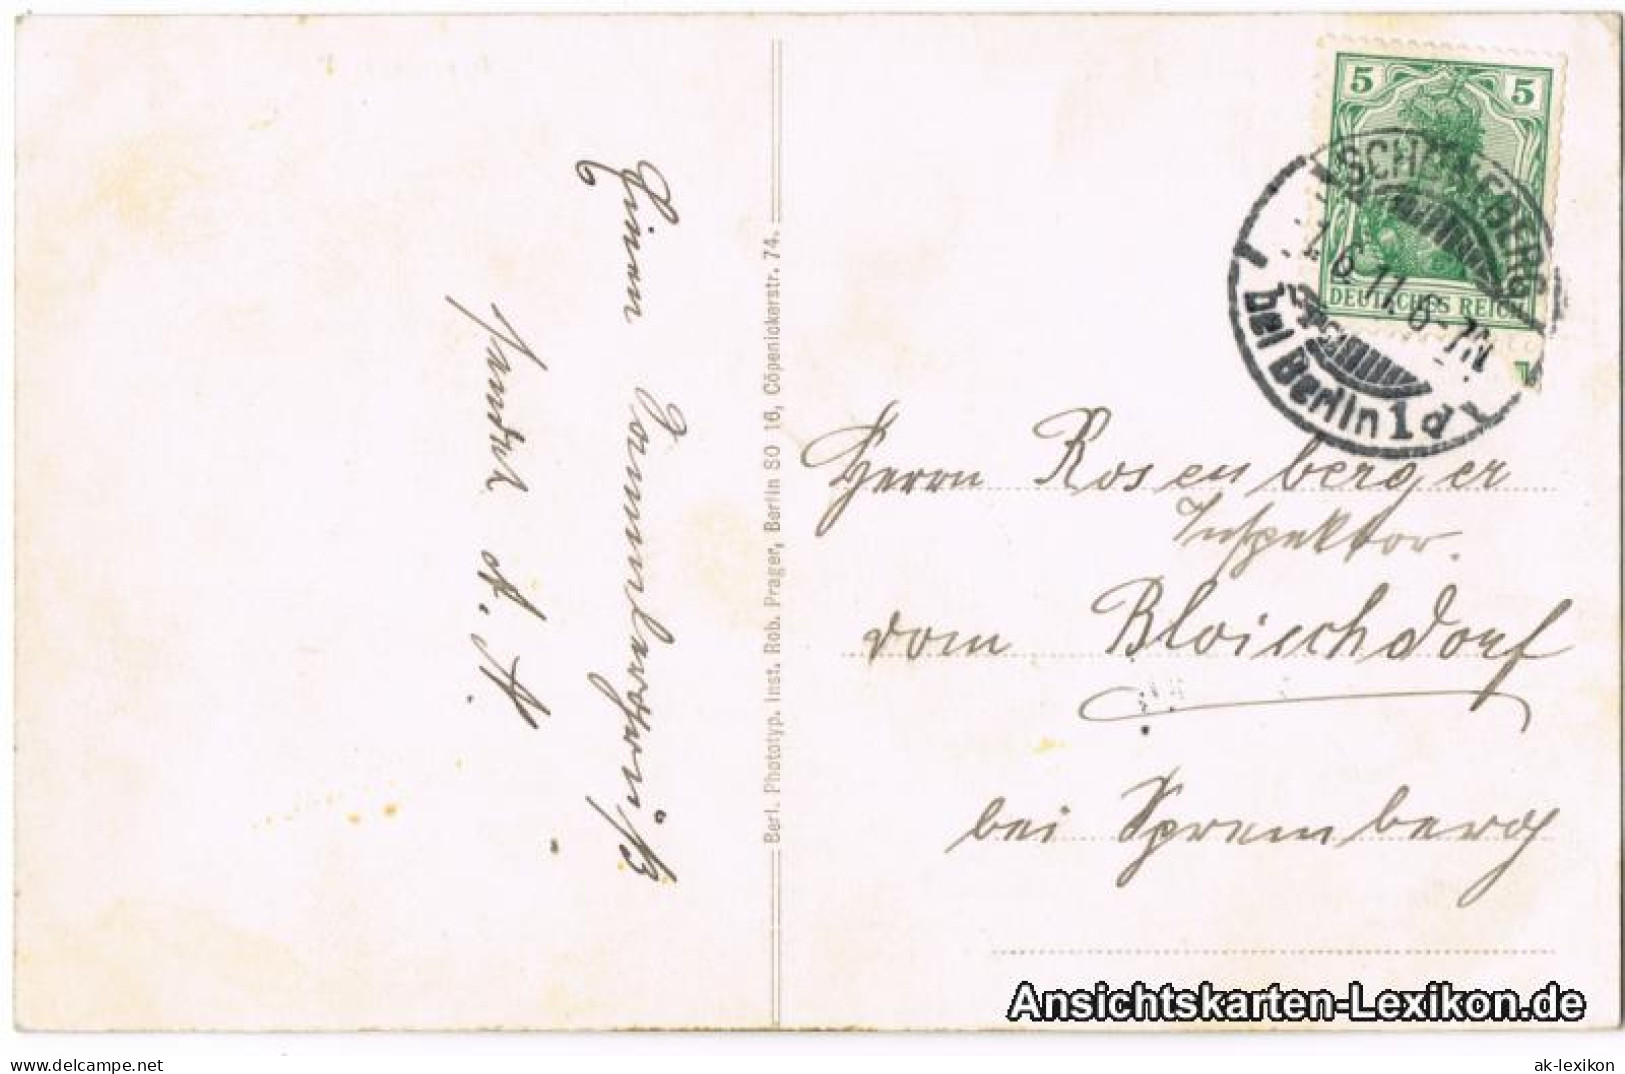 Einen Sommerlangruß
sendet A. A.
Berl. Phototyp. Inst. Rob. Prager, Berlin SO 16, Cöpenickerstr. 74.
5 5
DEUTSCHES REICH
SCHÖNEBERG
6.11. 6-7N
bei Berlin 1 d
Herrn Rosenberger
Inspektor.
Dom Bloischdorf
bei Spremberg
Ansichtskarten-Lexikon.de
ak-lexikon